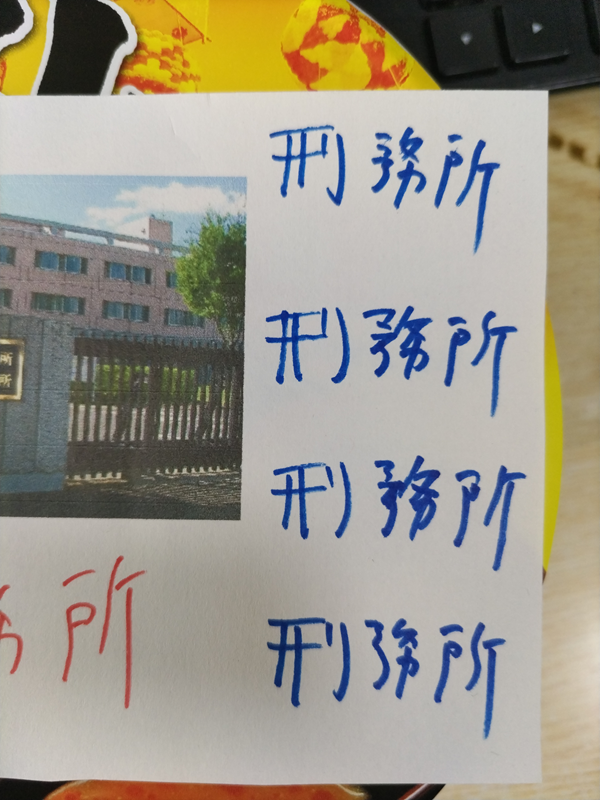 刑務所
刑務所
刑務所
刑務所
所
所
務所